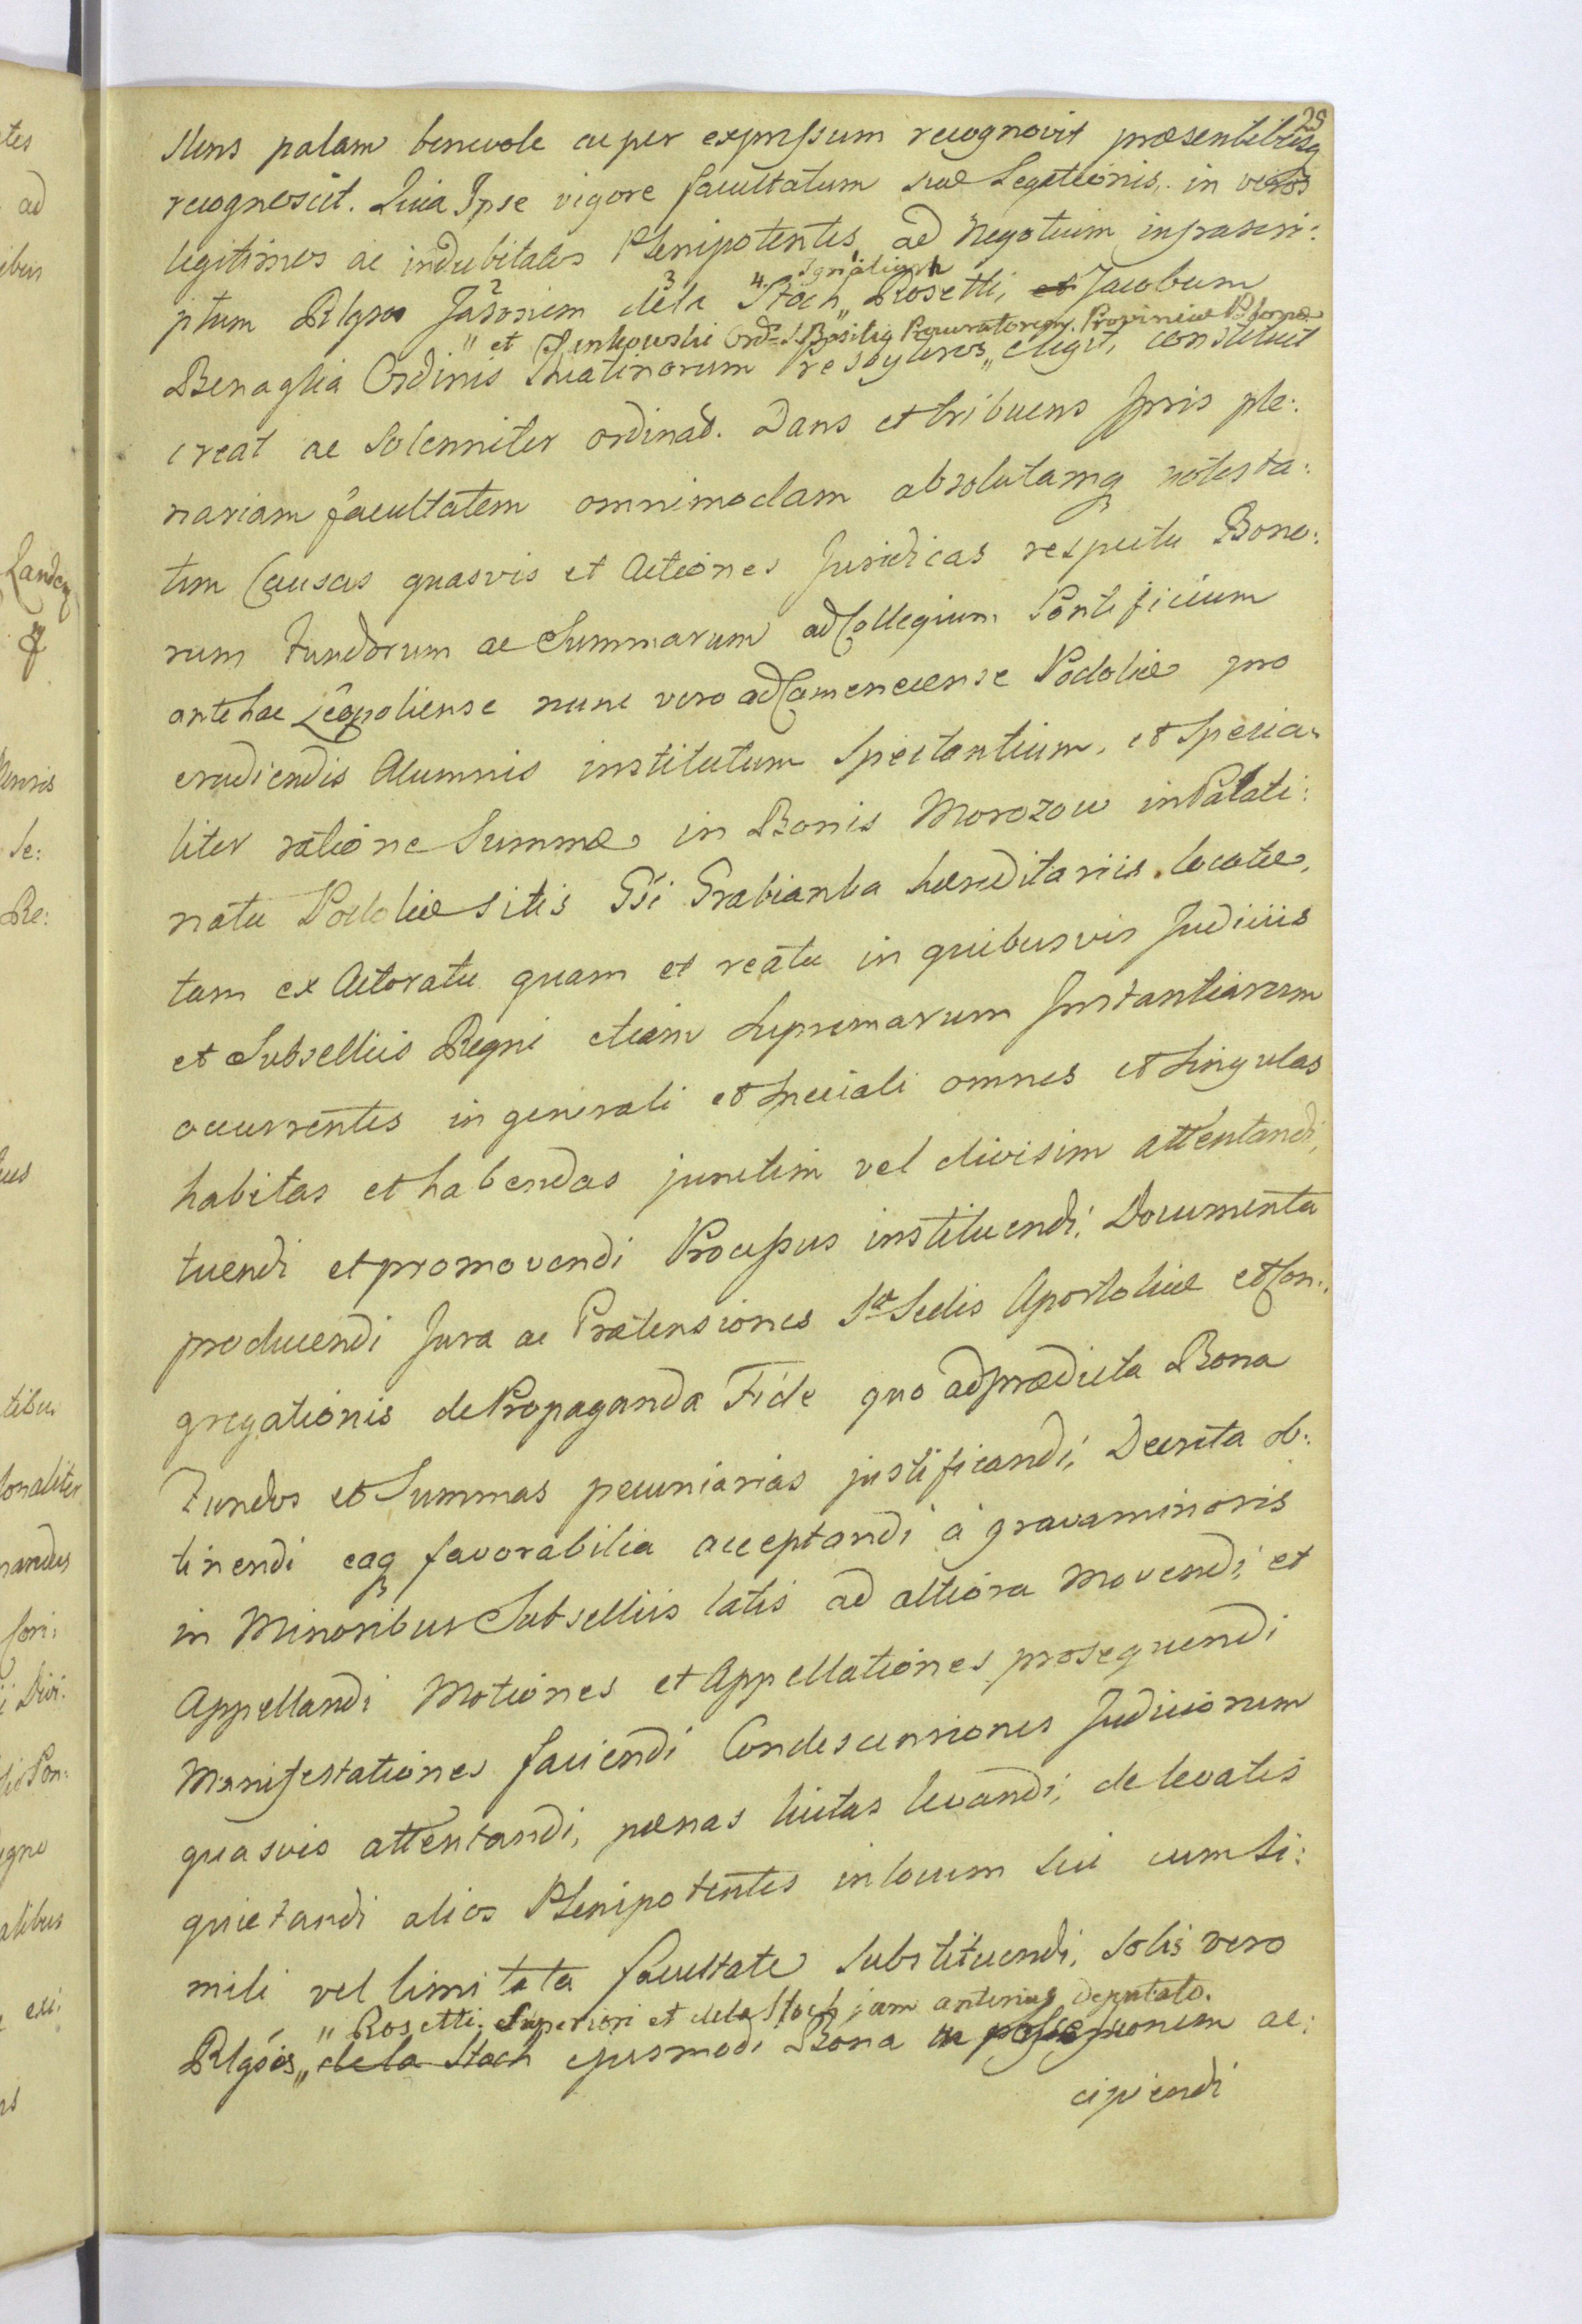 29
stens palam benevole ac per expressum recognovit præsentibusq
recognoscit. Quia Ipse vigore facultatum suæ Legationis, in veros
legitimos ac indubitatos Plenipotentes, ad Negotium infrascri:
Ignatium
ptum Rlgsos Jasoniem dela Stoch„ Rosetti, et Jacobum
„ et Junkowski Ord. S. Basilig Procuratorem. Provinciæ
Benaglia Ordinis Theatinorum Presbyteros„ elegit, constituit
creat ac Solenniter ordinat. Dans et tribuens Ipsis ple:
nariam facultatem omnimodam absolutamq potesta:
tem Causas quasvis et Actiones Juridicas respectu Bono:
rum Fundorum ac Summarum ad Collegium Pontificium
antehac Leopoliense nunc vero ad Camenecense Podoliæ pro
erudiendis Alumnis institutum Spectantium, et Specia:
liter ratione Summæ in Bonis Morozow in Palati:
natu Podoliæ sitis Gsi Grabianka hæreditariis locatæ,
tam ex Actoratu quam et reatu in quibusvis Judiciis
et Subselliis Regni etiam Supremarum Instantiarum
occurrentes in generali et speciali omnes et singulas
habitas et habendas junctim vel divisim attentandi,
tuendi et promovendi Processus instituendi, Documenta
producendi Jura ac Prætensiones Sæ Sedis Apostolicæ et Con:
gregationis de Propaganda Fide quo ad prædicta Bona
Fundos et Summas pecuniarias justificandi, Decreta ob:
tinendi eaq favorabilia acceptandi à gravaminoris
in Minoribus Subselliis latis ad altiora movendi, et
Appellandi Motiones et Appellationes prosequendi
Manifestationes faciendi Condescensiones Judiciorum
quasvis attentandi, pænas luitas levandi, de levatis
quietandi alios Plenipotentes in locum sui cum si:
mili vel limitata facultate Substituendi, solis vero
„ Rosetti. Superiori et dela Stoch jam anterius deputato.
Rlgsis„ de la Stoch ejusmodi Bona in possessionem ac:
cipiendi